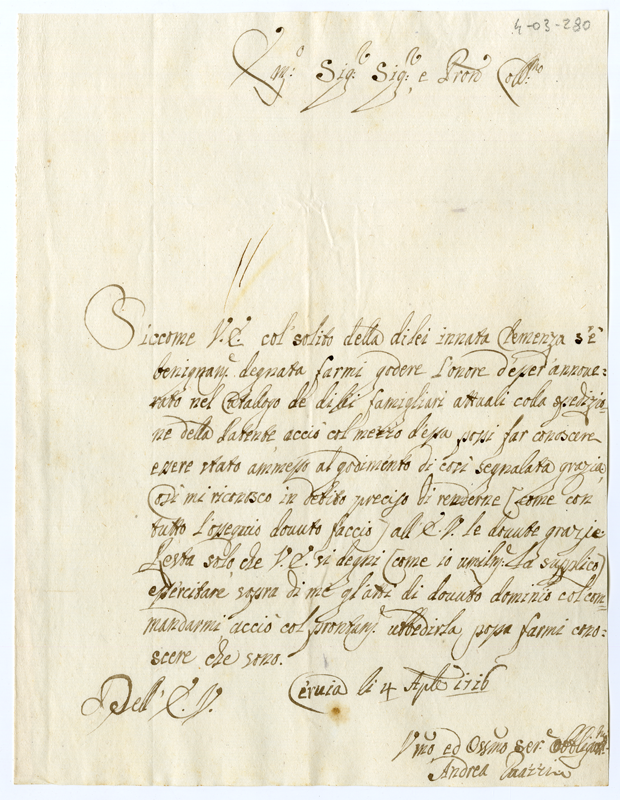 4-03-280
Em.o Sig.r Sig.r, e Pron Coll.mo
Siccome V.E. col' solito della di lei innata Clemenza s'è
benignam.e degnata farmi godere l'onore d'esser annove:
rato nel Catalogo de di lei famigliari attuali colla spedizio
ne della Patente acciò col mezzo d'essa possi far conoscere
essere stato ammesso al godimento di così segnalata grazia,
Così mi riconosco in debito preciso di renderne (come con
tutto l'ossequio dovuto faccio) all'E.V. le dovute grazie
Resta solo che V.E. si degni (come io umilm.e La supplico)
essercitare sopra di me gl'atti di dovuto dominio col com
mandarmi acciò col prontam.e ubbedirla possa farmi cono:
scere che sono.
Dell' E.V. Cervia li 4 Aple 1716
Vmo ed Osmo Ser.e Obbligat.
Andrea